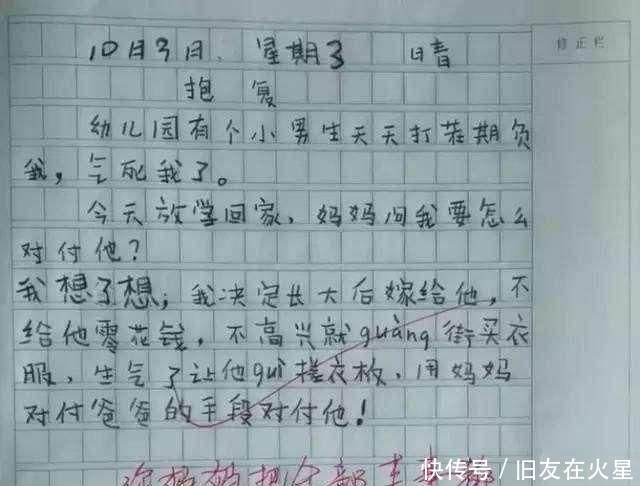 10月3日. 星期3 日晴
修正栏
抱复
幼儿园有个小男生天天打茬期负
我，气死我了。
今天放学回家，妈妈问我要怎么
对付他？
我想了想，我决定长大后嫁给他，不
给他零花钱，不高兴就guàng街买衣
服，生气了让他guì搓衣板，用妈妈
对付爸爸的手段对付他！
快传号 / 旧友在火星